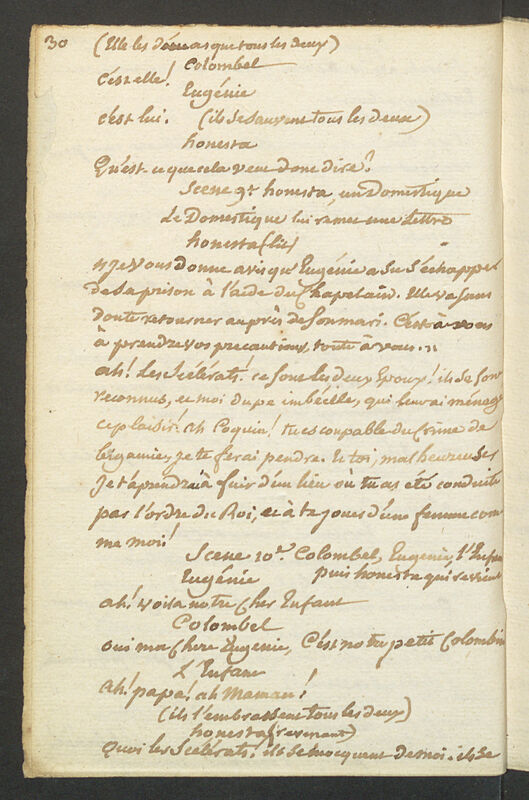 30
(Elle les démasque tous les deux)
Colombel
C'est elle!
Eugénie
C'est lui. (ils se sauvent tous les deux)
honesta
Qu'est-ce que cela veut donc dire?
Scene 9e honesta, un Domestique
Le Domestique lui remet une Lettre
honesta (lit)
"Je vous donne avis qu'Eugénie a su s'échapper
de sa prison à l'aide du Chapelain. Elle va sans
doute retourner auprès de son mari. C'est à vous
à prendre vos precautions, toute à vous."
ah! Les Scélérats! ce sont les deux Epoux! ils se sont
reconnus, et moi dupe imbécille, qui leur ai ménagé
ce plaisir! ah Coquin! tu es coupable du Crime de
bigamie, je te ferai pendre. Et toi, malheureuse
Je t'aprendrai à fuir d'un lieu où tu as été conduite
par l'ordre du Roi, et à te jouer d'une femme com
me moi!
Scene 10e Colombel, Eugenie, l'Enfant
puis honesta qui revient
Eugénie
ah! voila notre Cher Enfant
Colombel
oui ma Chere Eugenie, C'est notre petit Colombin
L'Enfant
Ah! papa! ah Maman!
(ils l'embrassent tous les deux)
honesta (revenant)
Quoi les Scélérats! ils se mocquent de moi. ils se